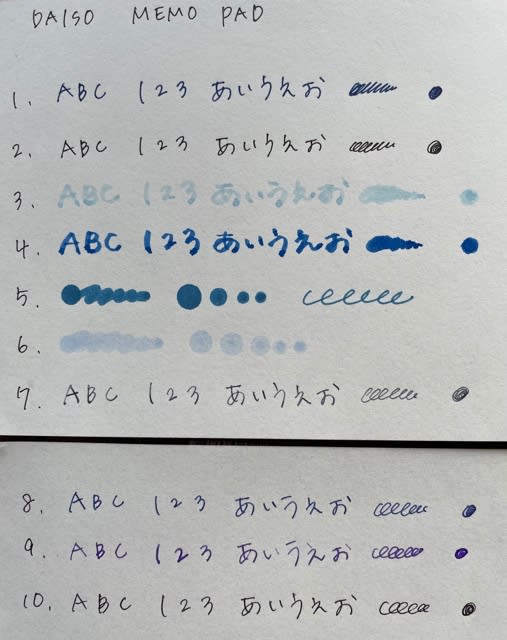 DAISO MEMO PAD
1. ABC 123 あいうえお
2. ABC 123 あいうえお
3. ABC 123 あいうえお
4. ABC 123 あいうえお
5.
6.
7. ABC 123 あいうえお
8. ABC 123 あいうえお
9. ABC 123 あいうえお
10. ABC 123 あいうえお